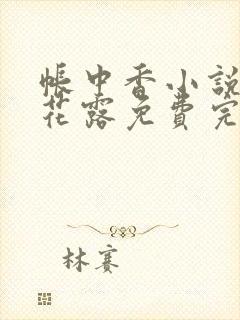 帳中香小說
花露免費完
林賽